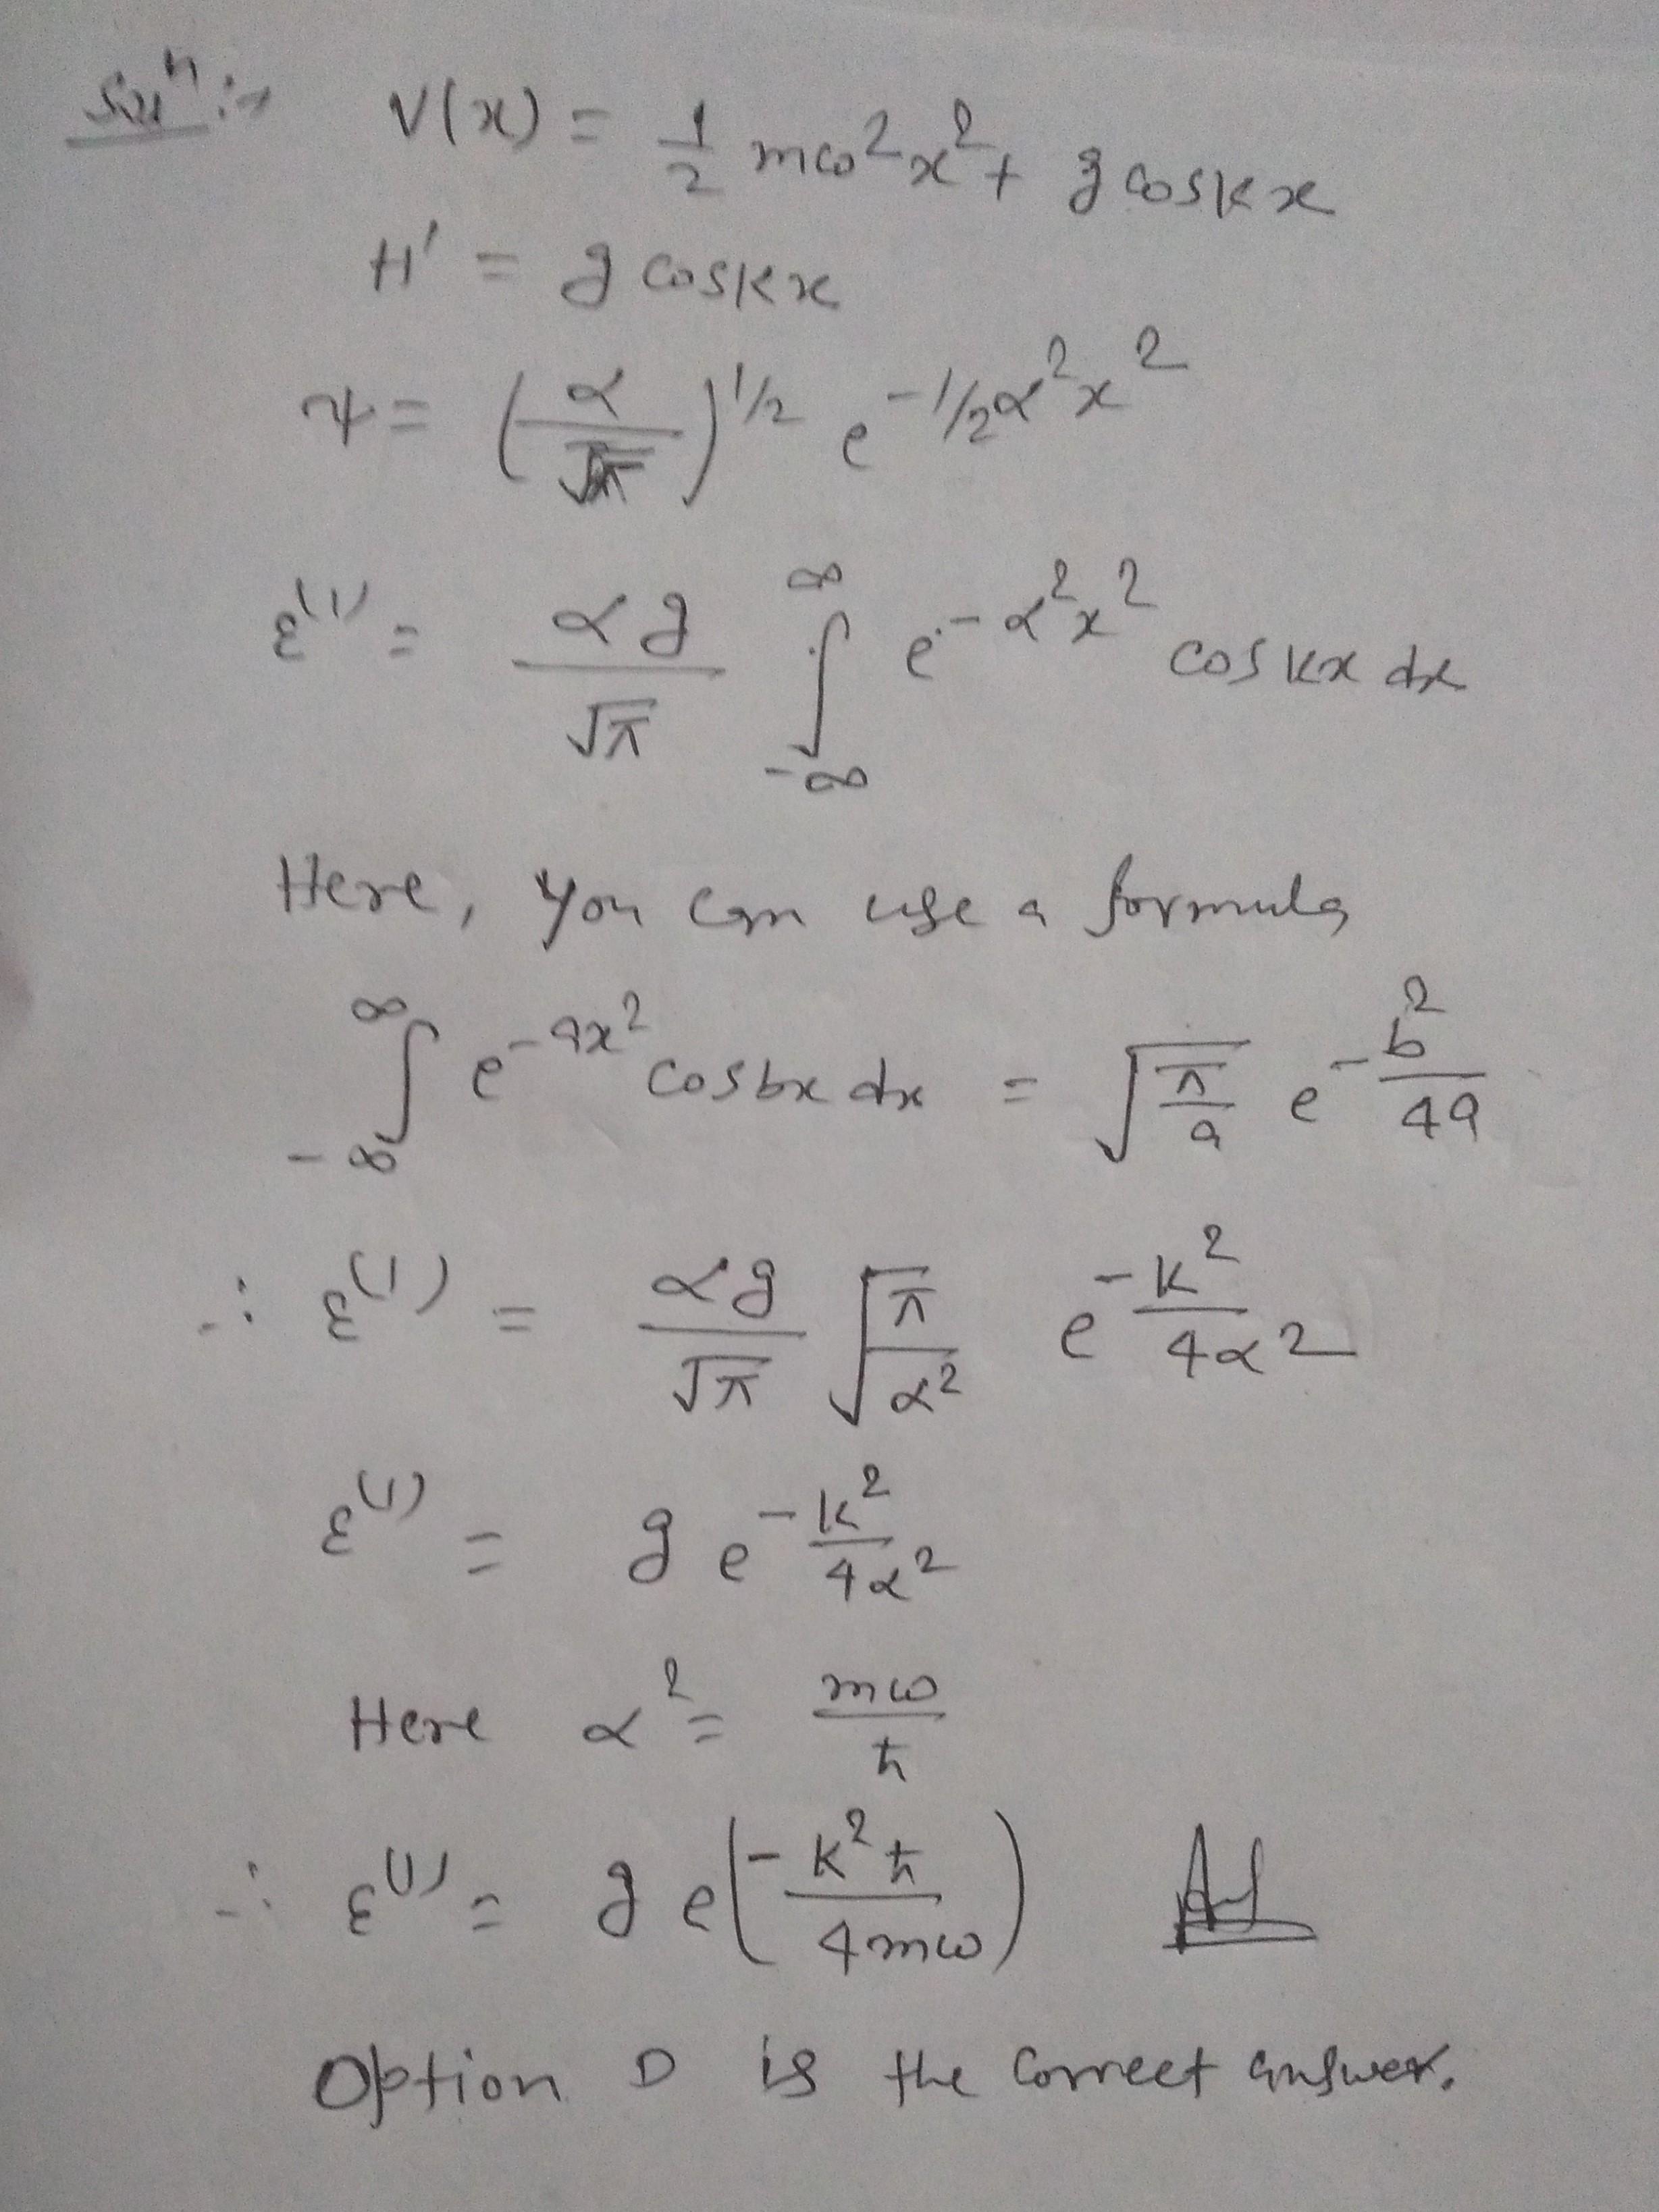 Solⁿ :-  V(x) = 1/2 mω²x² + g cos kx
H' = g cos kx
ψ = (α/√π)^1/2 e^(-1/2 α²x²)
ε⁽¹⁾ = αg/√π ∫_{-∞}^{∞} e^(-α²x²) cos kx dx
Here, you can use a formula
∫_{-∞}^{∞} e^(-ax²) cos bx dx = √(π/a) e^(-b²/4a)
∴ ε⁽¹⁾ = αg/√π √(π/α²) e^(-k²/4α²)
ε⁽¹⁾ = g e^(-k²/4α²)
Here α² = mω/ħ
∴ ε⁽¹⁾ = g e^(-k²ħ/4mω)
Option D is the correct answer.